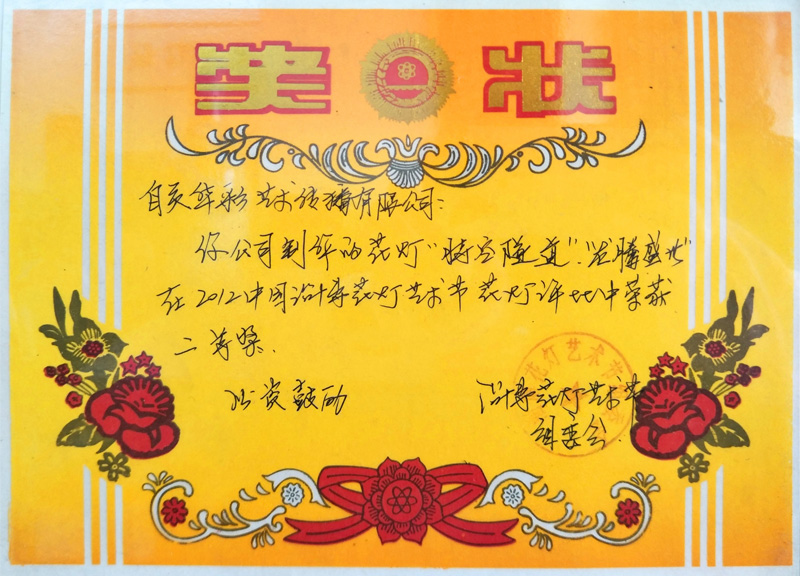 奖状
自贡华彩艺术传播有限公司:
你公司制作的花灯“时空隧道”、“龙腾盛世”
在2012中国淄博花灯艺术节花灯评比中荣获
二等奖.
此资鼓励
淄博花灯艺术节
组委会
花灯艺术节